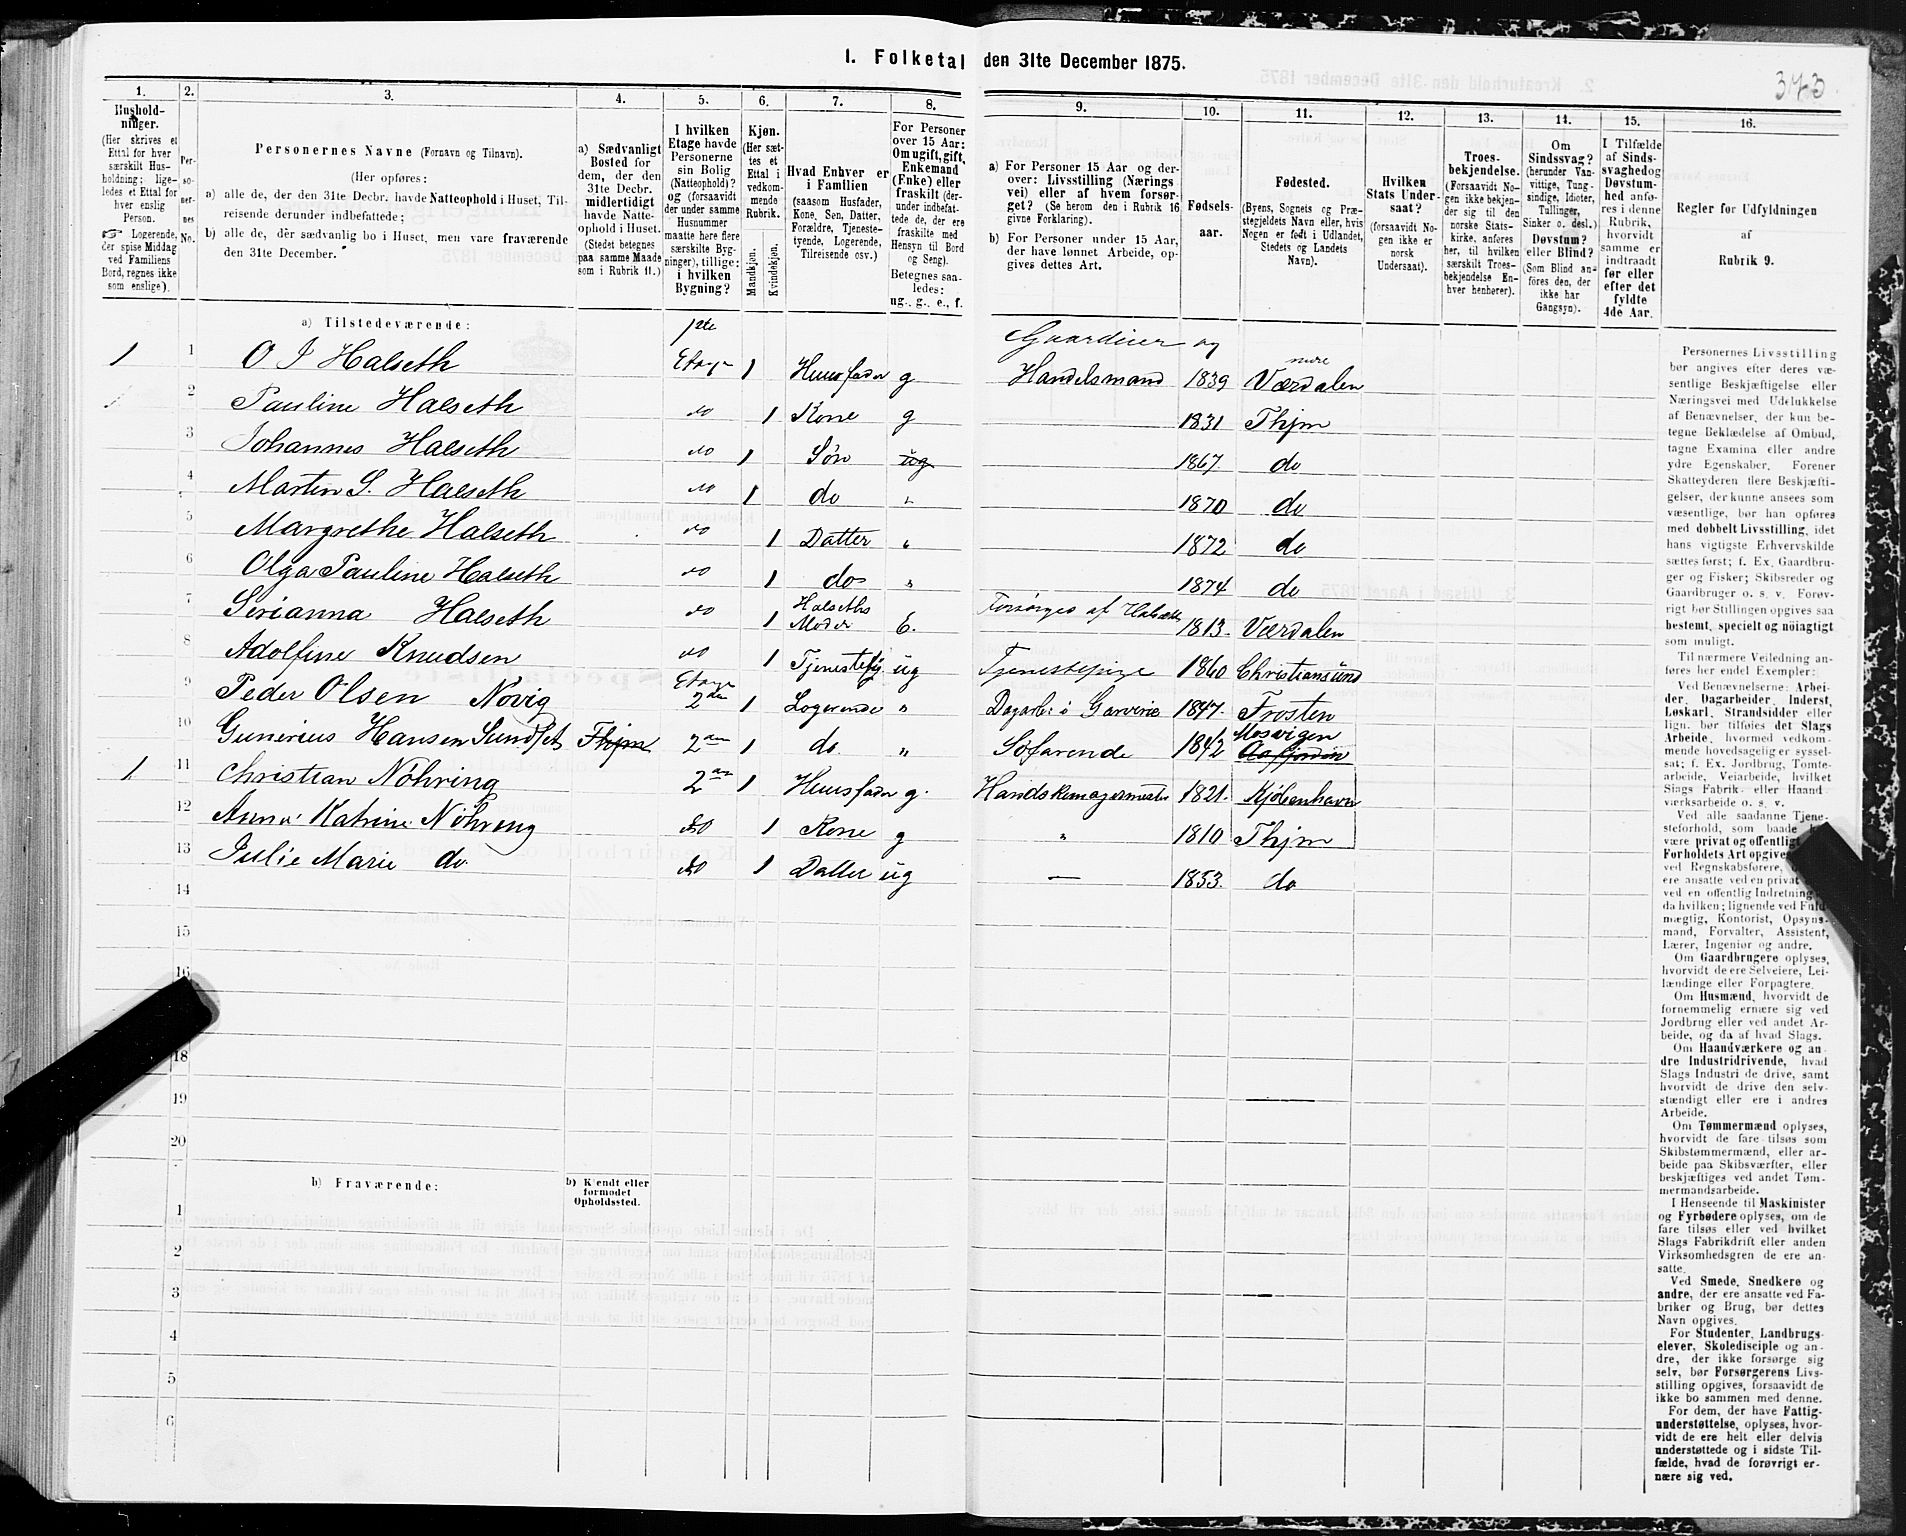 1. Folketal den 31te December 1875.
373
1.
2.
3.
4.
5.
6.
7.
8.
9.
10.
11.
12.
13.
14.
15.
16.
Hushold-
ninger.
(Her skrives et
Ettal for hver
særskilt Hus-
holdning; lige-
ledes et Ettal for
hver enslig
Person.
☞ Logerende,
der spise Middag
ved Familiens
Bord, regnes ikke
som enslige).
Per-
so-
ner-
nes
No.
Personernes Navne (Fornavn og Tilnavn).
(Her opføres:
a) alle de, der den 31te Decbr. havde Natteophold i Huset, Til-
reisende derunder indbefattede;
b) alle de, der sædvanlig bo i Huset, men vare fraværende
den 31te December.
a) Sædvanligt
Bosted for
dem, der den
31te Decbr.
midlertidigt
havde Natte-
ophold i Huset.
(Stedet betegnes
paa samme Maade
som i Rubrik 11.)
I hvilken
Etage havde
Personerne
sin Bolig
(Natteophold)?
og (forsaavidt
der under samme
Husnummer
maatte here flere
særskilte Byg-
ninger), tillige:
i hvilken
Bygning?
Kjøn.
(Her sæt-
tes et
Ettal i
vedkom-
mende
Rubrik.
Mandkjøn.
Kvindekjøn.
Hvad Enhver er
i Familien
(saasom Husfader,
Kone, Søn, Datter,
Forældre, Tjeneste-
tyende, Logerende,
Tilreisende osv.)
For Personer
over 15 Aar:
Om ugift, gift,
Enkemand
(Enke) eller
fraskilt (der-
under indbefat-
tede de, der ere
fraskilte med
Hensyn til Bord
og Seng).
Betegnes saa-
ledes:
ug., g., e., f.
a) For Personer 15 Aar og der-
over: Livsstilling (Nærings-
vei) eller af hvem forsør-
get? (Se herom den i Rubrik 16
givne Forklaring).
b) For Personer under 15 Aar,
der have lønnet Arbeide, op-
gives dettes Art.
Fødsels-
aar.
Fødested.
(Byens, Sognets og Præ-
stegjeldets Navn eller, hvis
Nogen er født i Udlandet,
Stedets og Landets
Navn).
Hvilken
Stats Under-
saat?
(forsaavidt No-
gen ikke er
norsk
Undersaat).
Troes-
bekjendelse.
(Forsaavidt No-
gen ikke bekjen-
der sig til den
norske Stats-
kirke, anføres
her, til hvilken
særskilt Troes-
bekjendelse En-
hver henhører).
Om
Sindssvag?
(herunder Van-
vittige, Tung-
sindige, Idioter,
Tullinger,
Sinker o. desl.)
Døvstum?
eller Blind?
(Som Blind an-
føres den, der
ikke har
Gangsyn).
I Tilfælde
af Sinds-
svaghed og
Døvstum-
hed anfø-
res i denne
Rubrik,
hvorvidt
samme er
indtraadt
før eller
efter det
fyldte
4de Aar.
Regler for Udfyldningen
af
Rubrik 9.
a) Tilstedeværende:
1 1 O J Halseth 1ste Etage 1 Huusfader g Gaardeier og Handelsmand 1839 Værdalen
2 Pauline Halseth do 1 Kone g 1831 Thjm
3 Johannes Halseth do 1 Søn ug 1867. do
4 Martin S. Halseth do 1 do " 1870 do
5 Margrethe Halseth do 1 Datter " 1872 do
6 Olga Pauline Halseth do 1 do " 1874 do
7 Serianna Halseth do 1 Halseths Moder E. Forsørges af Halseth 1813. Værdalen
8 Adolfine Knudsen do 1 Tjenestepig ug Tjenestepige 1860 Christiansund
9 Peder Olsen Növig Etage 2den 1 Logerende " Dagarb: i Garverie 1847. Frosten
10 Gunerius Hansen Sundset Thjm 2den 1 do. " Søfarende 1842 Mosvigen Aafjorden
1 11 Christian Nöhring 2den 1 Huusfader g. Handskemagermester 1821. Kjöbenhavn
12 Anna Katrine Nöhring do 1 Kone g " 1810 Thjm
13 Julie Marie do. do 1 Datter ug — 1853. do
14
15
16
18
19
20
b) Fraværende:
b) Kjendt eller
formodet
Opholdssted.
1
2
3
4
5
6
Personernes Livsstilling
bør angives efter deres væ-
sentlige Beskjæftigelse eller
Næringsvei med Udelukkelse
af Benævnelser, der kun be-
tegne Beklædelse af Ombud,
tagne Examina eller andre
ydre Egenskaber. Forener
Skatteyderen flere Beskjæfti-
gelser, der kunne ansees som
væsentlige, bør han opføres
med dobbelt Livsstilling, idet
hans vigtigste Erhvervskilde
sættes først; f. Ex. Gaardbru-
ger og Fisker; Skibsreder og
Gaardbruger o. s. v. Forøv-
rigt bør Stillingen opgives saa
bestemt, specielt og nøiagtigt
som muligt.
Til nærmere Veiledning an-
føres her endel Exempler:
Ved Benævnelserne: Arbei-
der, Dagarbeider, Inderst,
Løskarl, Strandsidder eller
lign. bør tilføies det Slags
Arbeide, hvormed vedkom-
mende hovedsagelig er syssel-
sat; f. Ex. Jordbrug, Tomte-
arbeide, Veiarbeide, hvilket
Slags Fabrik- eller Haand-
værksarbeide o. s. v.
Ved alle saadanne Tjene-
steforhold, som baade
være privat og offentlig
Forholdets Art opgives
ved Regnskabsførere,
ere ansatte ved en privat
ved en offentlig Indretning
da hvilken; lignende ved Fuld-
mægtig, Kontorist, Opsyns-
mand, Forvalter, Assistent,
Lærer, Ingeniør og andre.
Om Gaardbrugere oplyses,
hvorvidt de ere Selveiere, Lei-
lændinge eller Forpagtere.
Om Husmænd, hvorvidt de
fornemmelig ernære sig ved
Jordbrug eller ved andet Ar-
beide, og da af hvad Slags.
Om Haandværkere og an-
dre Industridrivende, hvad
Slags Industri de drive, samt
hvorvidt de drive den selv-
stændigt eller ere i andres
Arbeide.
Om Tømmermænd oplyses,
hvorvidt de fare tilsøs som
Skibstømmermænd, eller ar-
beide paa Skibsværfter, eller
beskjæftiges ved andet Tøm-
mermandsarbeide.
I Henseende til Maskinister
og Fyrbødere oplyses, om de
fare tilsøs eller ved hvilket
Slags Fabrikdrift eller anden
Virksomhedsgren de ere an-
satte.
Ved Smede, Snedkere og
andre, der ere ansatte ved Fa-
briker og Brug, bør dettes
Navn opgives.
For Studenter, Landbrugs-
elever, Skoledisciple og an-
dre, der ikke forsørge sig
selv, bør Forsørgerens Livs-
stilling opgives, forsaavidt de
ikke bo sammen med denne.
For dem, der have Fattig-
understøttelse, oplyses, hvor-
vidt de ere helt eller delvis
understøttede og i sidste Til-
fælde, hvad de forøvrigt er-
nære sig ved.